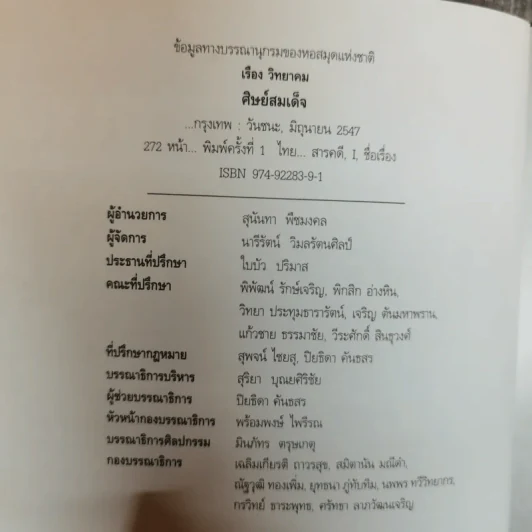 ข้อมูลทางบรรณานุกรมของหอสมุดแห่งชาติ
เรือง วิทยาคม
ศิษย์สมเด็จ
...กรุงเทพ : วันชนะ, มิถุนายน 2547
272 หน้า... พิมพ์ครั้งที่ 1 ไทย... สารคดี, I, ชื่อเรื่อง
ISBN 974-92283-9-1
ผู้อำนวยการ สุนันทา พืชมงคล
ผู้จัดการ นารีรัตน์ วิมลรัตนศิลป์
ประธานที่ปรึกษา ใบบัว ปริมาส
คณะที่ปรึกษา พิพัฒน์ รักษ์เจริญ, พิกสิก อ่างหิน,
วิทยา ประทุมธารารัตน์, เจริญ ตันมหาพราน,
แก้วชาย ธรรมาชัย, วีระศักดิ์ สินธุวงศ์
ที่ปรึกษากฎหมาย สุพจน์ ไชยสุ, ปิยธิดา คันธสร
บรรณาธิการบริหาร สุริยา บุณยศิริชัย
ผู้ช่วยบรรณาธิการ ปิยธิดา คันธสร
หัวหน้ากองบรรณาธิการ พร้อมพงษ์ ไพรีรณ
บรรณาธิการศิลปกรรม มินภัทร ดรุษเกตุ
กองบรรณาธิการ เฉลิมเกียรติ ถาวรสุข, สมิตานัน มณีดำ,
ณัฐวุฒิ ทองเพิ่ม, ยุทธนา ภู่ทับทิม, นพพร ทวีวิทยากร,
กรวิทย์ ธาระพุทธ, ศรัทธา ลาภวัฒนเจริญ